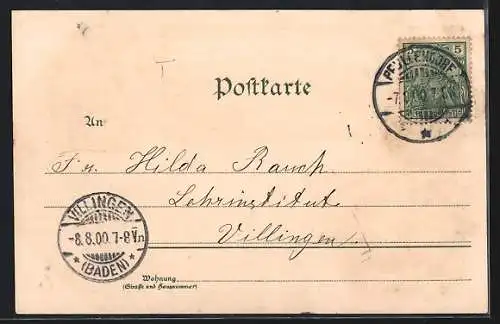 5
PFULLENDORF
Postkarte
An
Frn. Hilda Rauch
Lehrinstitut
Villingen.
VILLINGEN
-8.8.00.7-8Vn
(BADEN)
Wohnung
(Straße und Hausnummer)